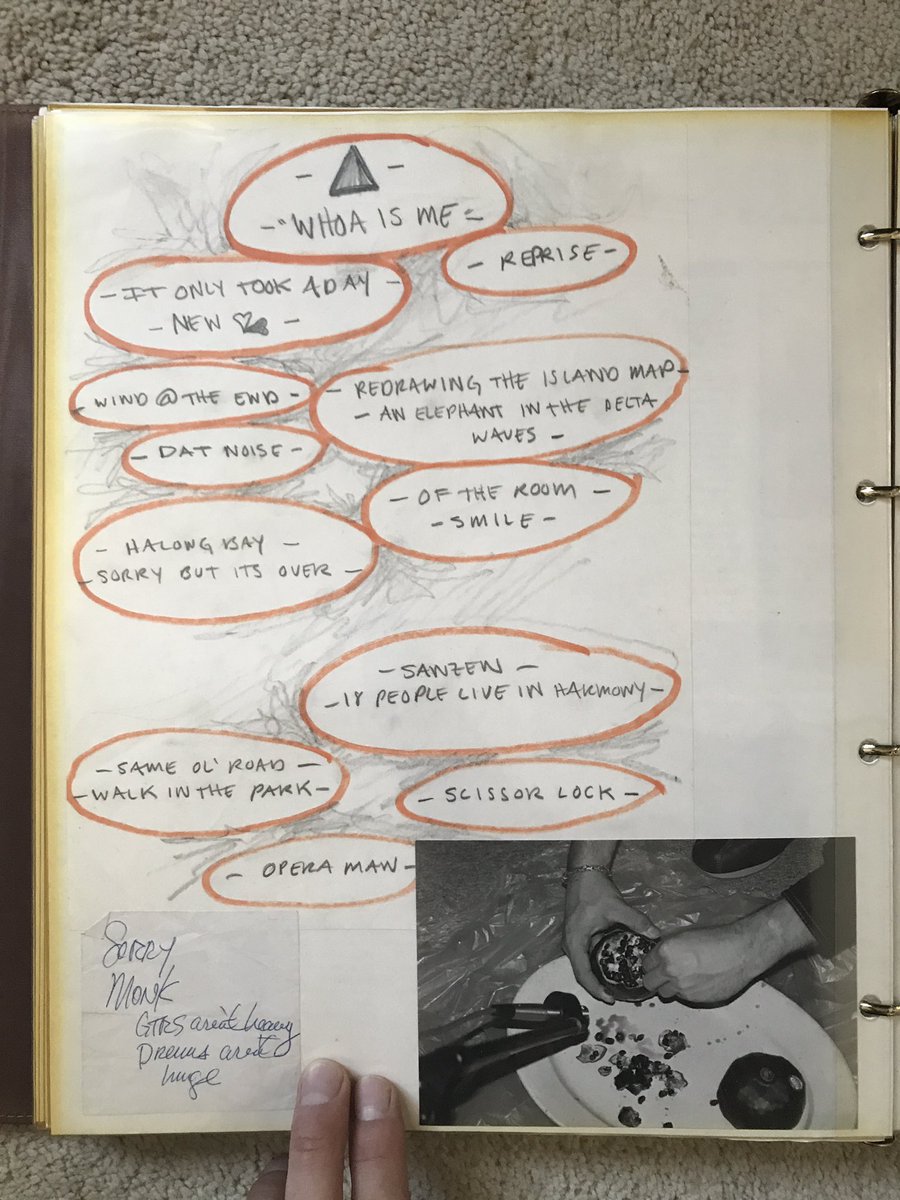 - ▲ -
- "WHOA IS ME" -
- REPRISE -
- IT ONLY TOOK A DAY -
- NEW
- WIND @ THE END -
- REDRAWING THE ISLAND MAP -
- AN ELEPHANT IN THE DELTA
WAVES -
- DAT NOISE -
- OF THE ROOM -
- SMILE -
- HALONG BAY -
- SORRY BUT ITS OVER -
- SANZEN -
- 18 PEOPLE LIVE IN HARMONY -
- SAME OL' ROAD -
- WALK IN THE PARK -
- SCISSOR LOCK -
- OPERA MAN -
Sorry
Monk
GTRS aren't heavy
Drums aren't
huge